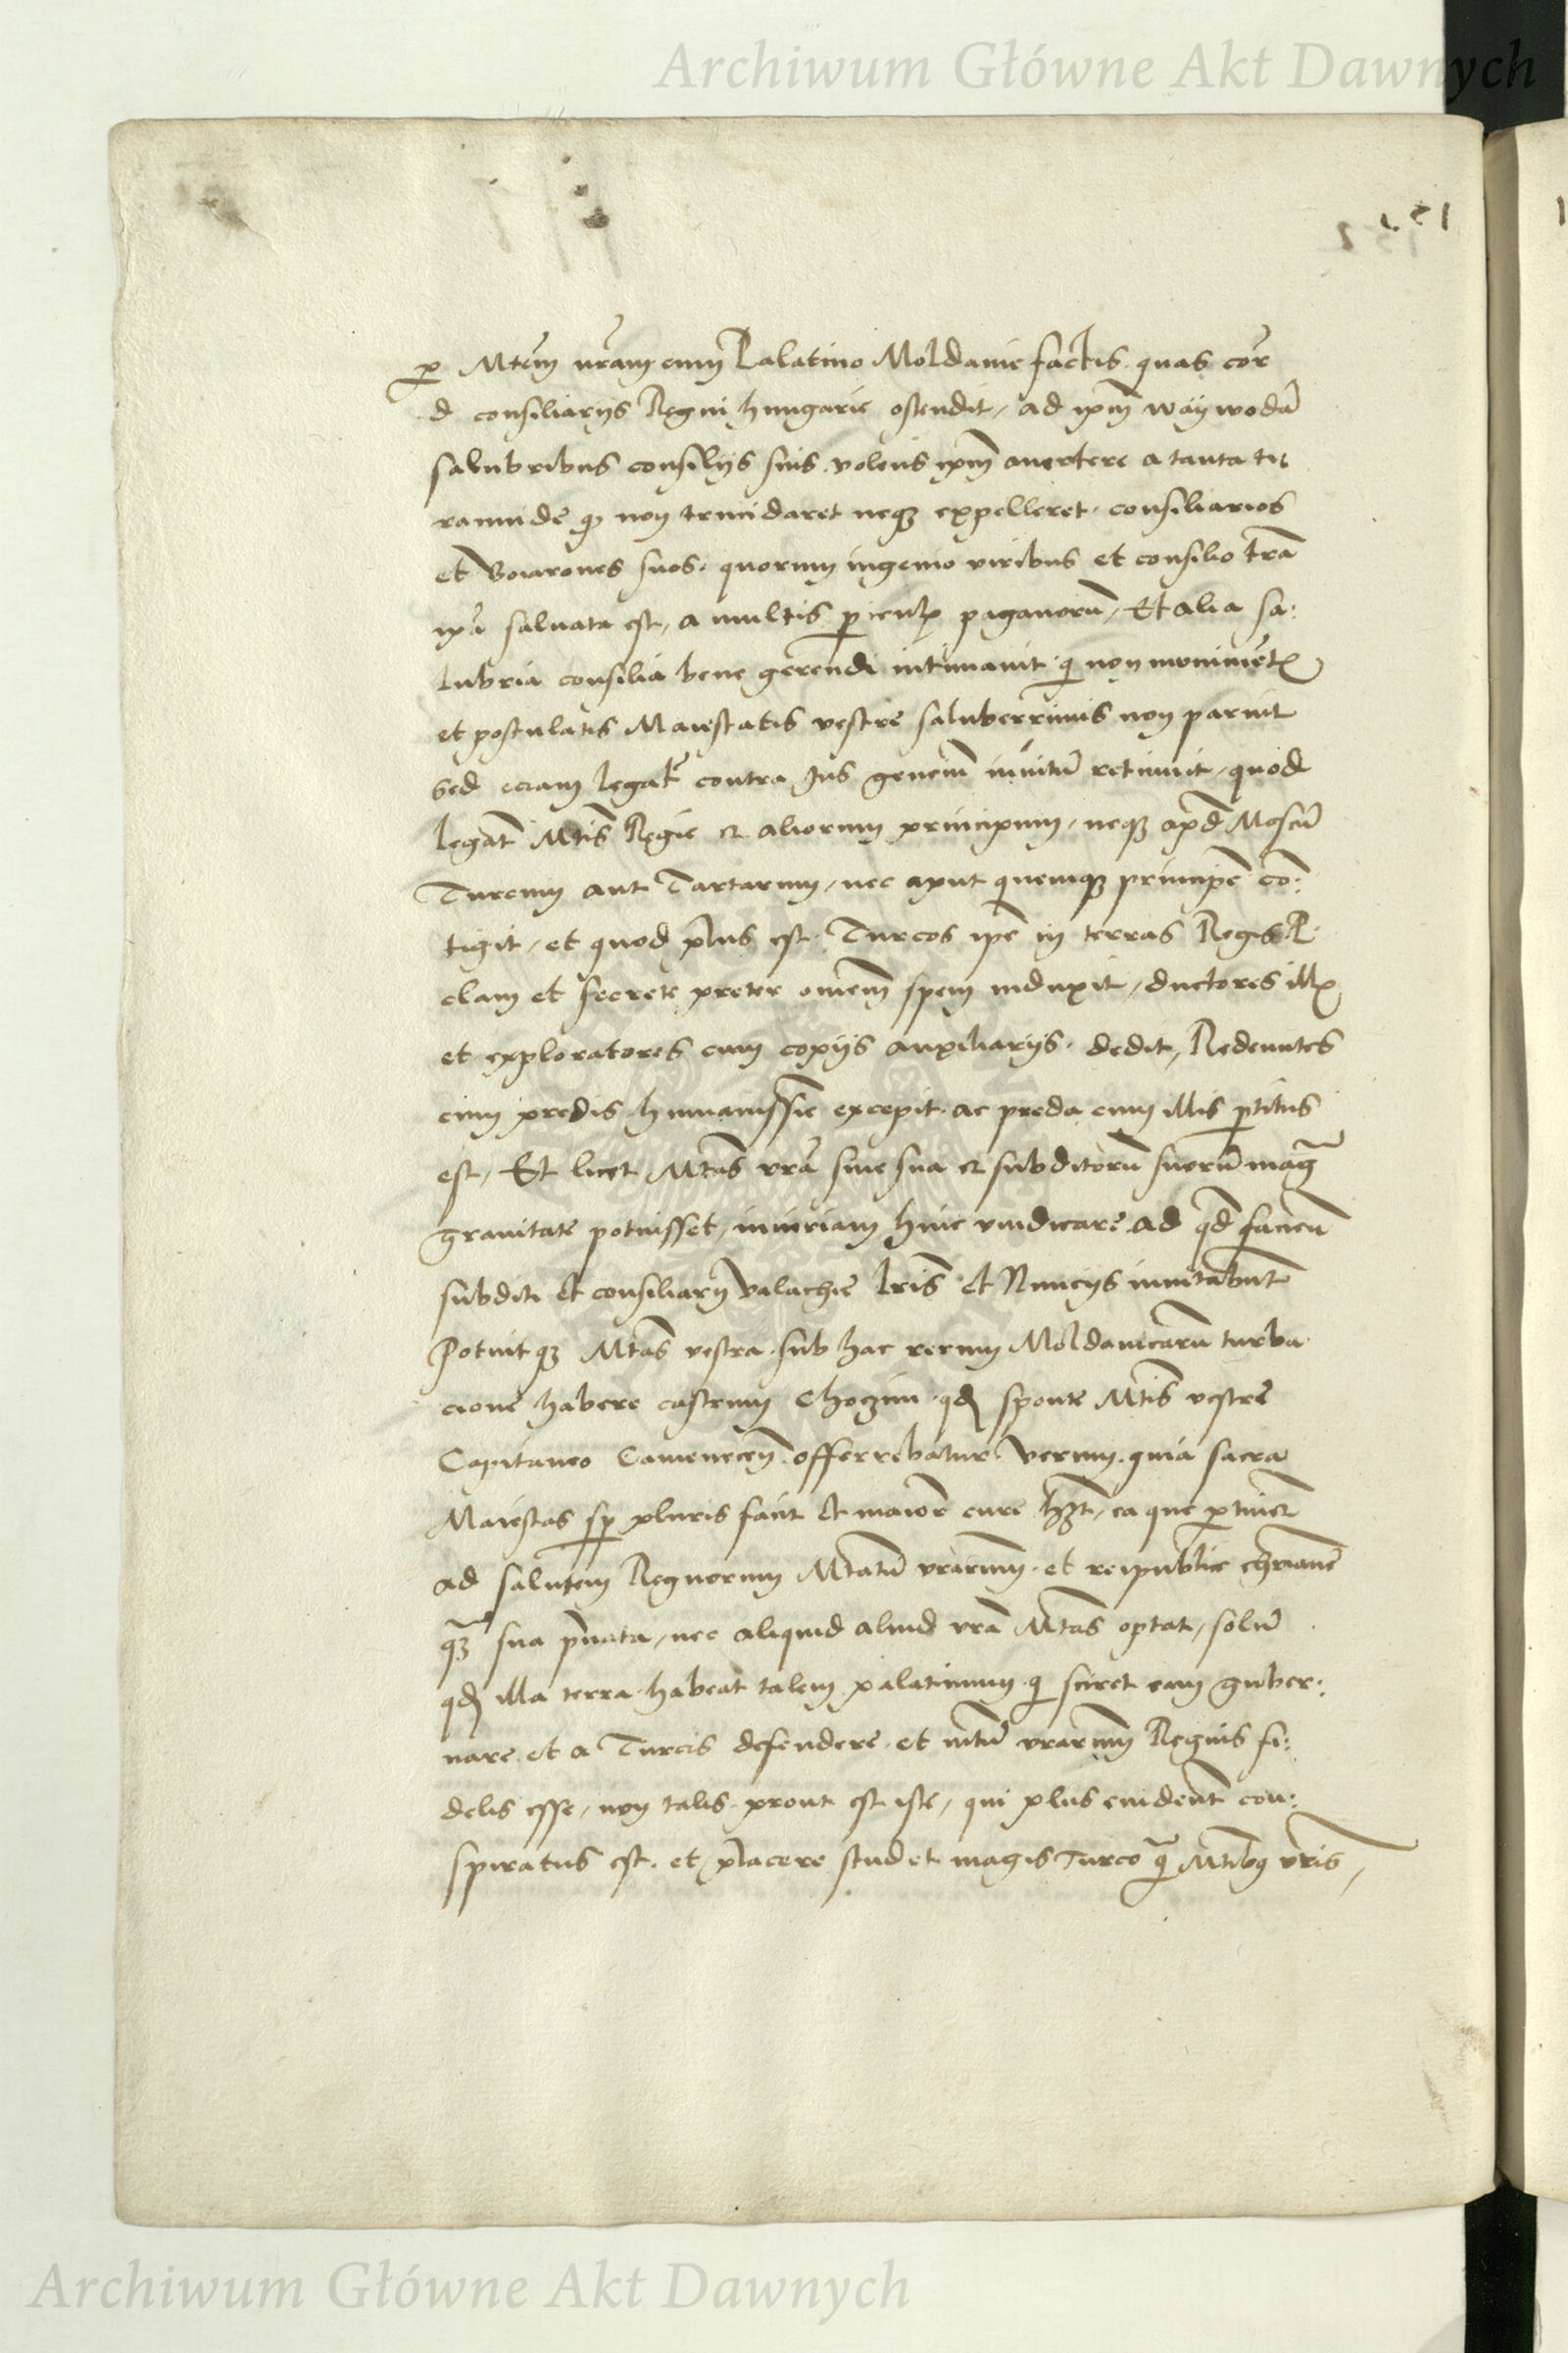 Archiwum Główne Akt Dawnych
p Mtem vram cum Palatino Moldauie factis quas cor
d consiliarijs Regni hungarie ostendit, ad ipm waywodā
salubribus consilijs suis volens ipm auertere a tanta ti
rannide q non trucidaret neq expelleret consiliarios
et Boiarones suos quorum ingenio viribus et consilio trā
ipā saluata est, a multis piculis paganorū, Et alia sa:
lubria consilia bene gerendi intimauit q non monimētis
et postulatis Maiestatis vestre saluberrimis non paruit
sed eciam legat contra Jus gencim inuitū retinuit, quod
legat Mtis Regie et aliorum principum, neq apd Moscū
Turcum aut Tartarum, nec aput quemq principē cō:
tigit, et quod plus est Turcos ipe in terras Regis P.
clam et secrete preter omem spem induxit, ductores illis
et exploratores cum copijs auxiliarijs dedit, Redeuntes
cum predis humanissie excepit ac preda cum illis ptitus
est, Et licet Mtas vrā siue sua et subditorū suorū mag
grauitate potuisset, iniuriam hinc vindicare ad qd faciēn
subditi et consiliarij valachie lris et Nuncijs inuitabūt
Potuitq Mtas vestra sub hac rerum Moldauicarū turba
cione habere castrum Choczim qd sponte Mtis vestre
Capitaneo Camenecen offerrebatur verum quia sacra
Maiestas sp pluris facit et maiore cure hzt, ea que ptinet
ad salutem Regnorum Mtatū vrarum et reipublice chrianē
q sua priuata, nec aliquid aliud vrā Mtas optat, solū
qd illa terra habeat talem palatinum q sciret eam guber:
nare et a Turcis defendere et mtū vrarum Regnis fi:
delis esse, non talis prout est iste, qui plus euident con:
spiratus est et placere studet magis Turco q Mtibus vris,
Archiwum Główne Akt Dawnych